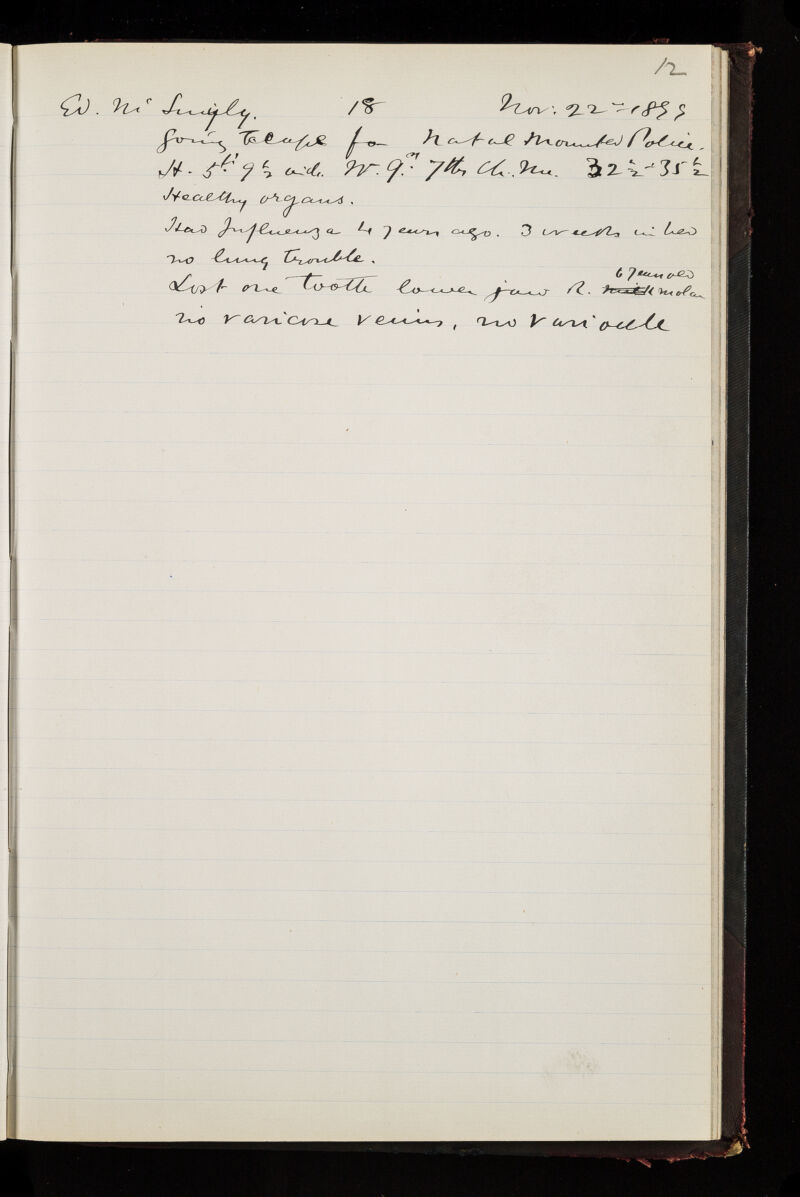 12
Ed. Mc 18 Nov: 22nd 1899
Going to Cape for Natal Mounted Police.
H. 5ft. 9½ inch. W. 9st. 7lbs Ch. Me. 32½ - 35½
Healthy organs.
Had Influenza 4 years ago. 3 weeks in bed
no lung trouble.
6 year old
Lost one tooth lower jaw R. molar
no varicose veins, no varicocele